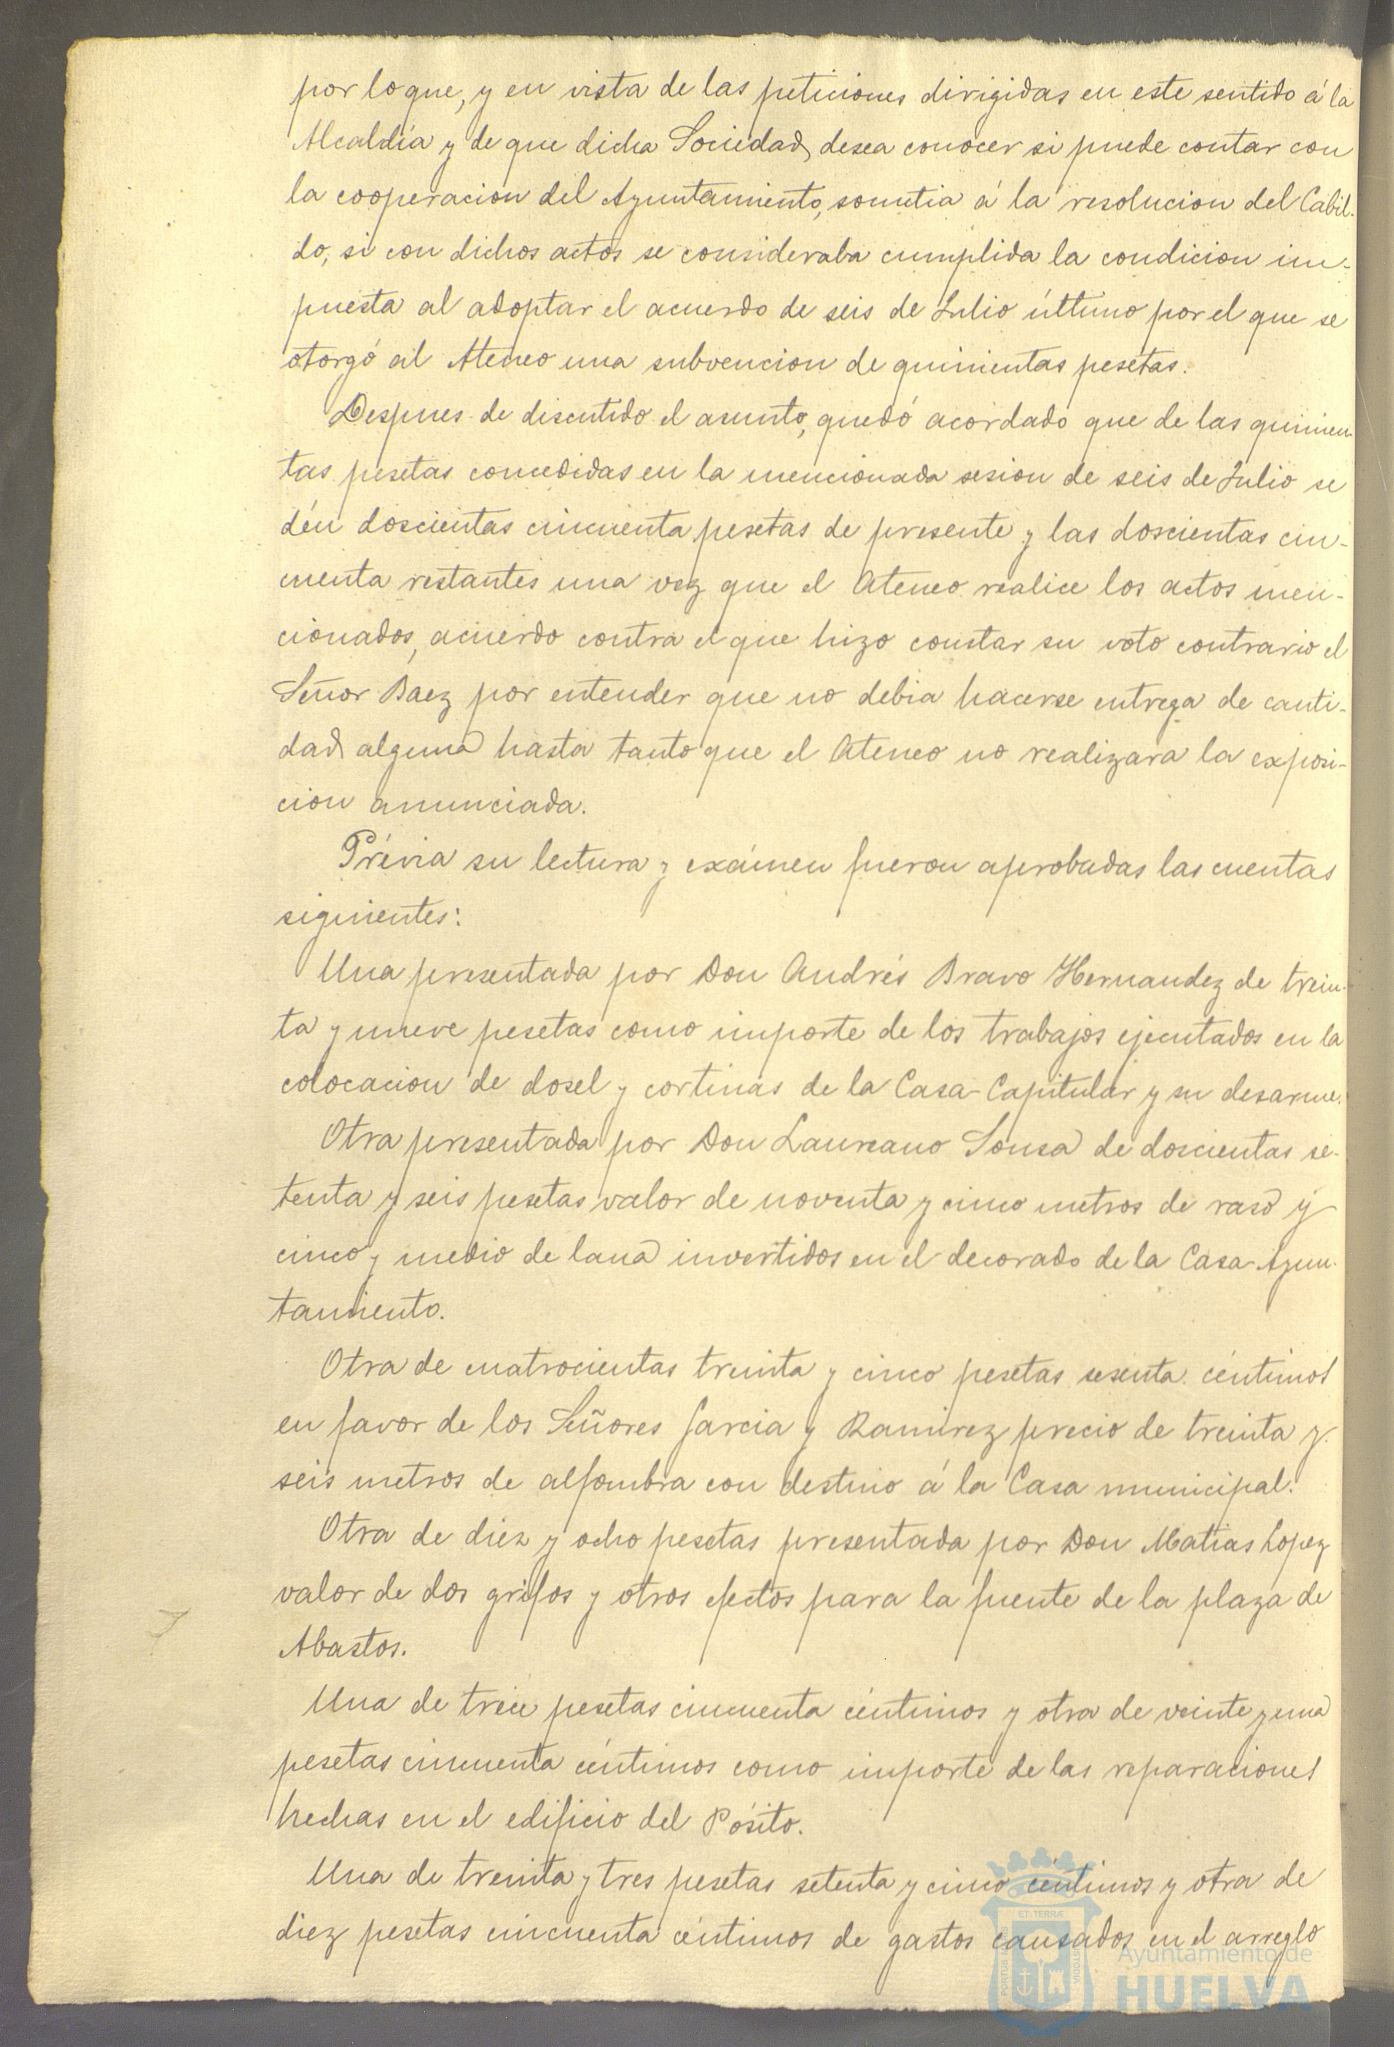 por lo que, y en vista de las peticiones dirigidas en este sentido á la
Alcaldía y de que dicha Sociedad, desea conocer si puede contar con
la cooperacion del Ayuntamiento, sometia á la resolucion del Cabil-
do, si con dichos actos se consideraba cumplida la condicion im-
puesta al adoptar el acuerdo de seis de Julio último por el que se
otorgó al Ateneo una subvencion de quinientas pesetas.
Despues de discutido el asunto, quedó acordado que de las quinien-
tas pesetas concedidas en la mencionada sesion de seis de Julio se
dén doscientas cincuenta pesetas de presente y las doscientas cin-
cuenta restantes una vez que el Ateneo realice los actos men-
cionados, acuerdo contra el que hizo constar su voto contrario el
Señor Baez por entender que no debia hacerse entrega de canti-
dad alguna hasta tanto que el Ateneo no realizara la exposi-
cion anunciada.
Prévia su lectura y exámen fueron aprobadas las cuentas
siguientes:
Una presentada por Don Andrés Bravo Hernandez de trein-
ta y nueve pesetas como importe de los trabajos ejecutados en la
colocacion de dosel y cortinas de la Casa-Capitular y su desarme.
Otra presentada por Don Laureano Sousa de doscientas se-
tenta y seis pesetas valor de noventa y cinco metros de raso y
cinco y medio de lana invertidos en el decorado de la Casa-Ayun-
tamiento.
Otra de cuatrocientas treinta y cinco pesetas sesenta céntimos
en favor de los Señores Garcia y Ramirez precio de treinta y
seis metros de alfombra con destino á la Casa municipal.
Otra de diez y ocho pesetas presentada por Don Matias Lopez
valor de dos grifos y otros efectos para la fuente de la plaza de
Abastos.
Una de trece pesetas cincuenta céntimos y otra de veinte y una
pesetas cincuenta céntimos como importe de las reparaciones
hechas en el edificio del Pósito.
Una de treinta y tres pesetas setenta y cinco céntimos y otra de
diez pesetas cincuenta céntimos de gastos causados en el arreglo
Ayuntamiento de
HUELVA